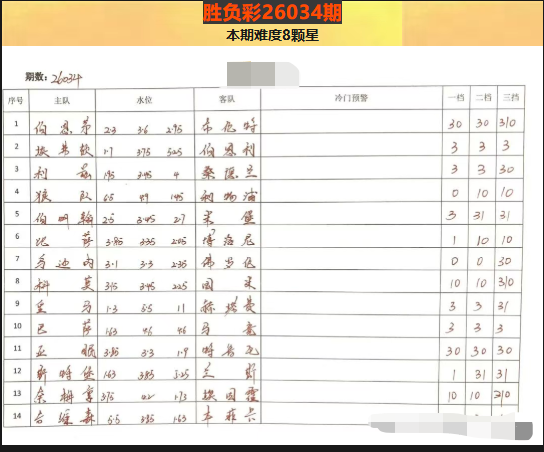 胜负彩26034期
本期难度8颗星
期数: 26034
序号 主队 水位 客队 冷门预警 一档 二档 三档
1 伯恩茅 2.3 3.6 2.95 布伦特 30 30 310
2 埃弗顿 1.7 3.75 5.25 伯恩利 3 3 3
3 利兹 1.95 3.45 4 桑德兰 3 3 30
4 狼队 6.5 4.9 1.45 利物浦 0 10 10
5 伯明翰 2.5 3.45 2.7 米堡 3 31 31
6 比萨 3.85 3.35 2.05 博洛尼 1 10 10
7 乌迪内 3.1 3.3 2.35 佛罗伦 0 0 30
8 科莫 3.15 3.45 2.25 国米 10 10 310
9 皇马 1.3 5.5 11 赫塔费 3 3 31
10 巴萨 1.63 4.6 4.6 马竞 3 3 3
11 亚顺 3.85 3.3 1.9 特鲁瓦 30 30 30
12 斯特堡 1.63 3.85 5.25 兰斯 1 31 31
13 奈梅亨 3.75 4.2 1.73 埃因霍 10 10 310
14 合维森 5.5 3.85 1.63 卡